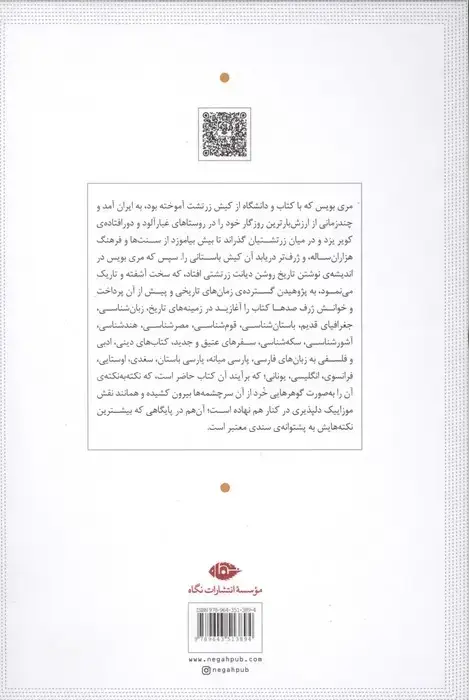 مری بویس که با کتاب و دانشگاه از کیش زرتشت آموخته بود، به ایران آمد و
چندزمانی از ارزش‌بارترین روزگار خود را در روستاهای غبارآلود و دورافتاده‌ی
کویر یزد و در میان زرتشتیان گذراند تا بیش بیاموزد از سنت‌ها و فرهنگ
هزاران‌ساله، و ژرف‌تر دریابد آن کیش باستانی را. سپس که مری بویس در
اندیشه‌ی نوشتن تاریخ روشن دیانت زرتشتی افتاد، که سخت آشفته و تاریک
می‌نمود، به پژوهیدن گسترده‌ی زمان‌های تاریخی و پیش از آن پرداخت
و خوانش ژرف صدها کتاب را آغازید در زمینه‌های تاریخ، زبان‌شناسی،
جغرافیای قدیم، باستان‌شناسی، قوم‌شناسی، مصرشناسی، هندشناسی،
آشورشناسی، سکه‌شناسی، سفرهای عتیق و جدید، کتاب‌های دینی، ادبی
و فلسفی به زبان‌های فارسی، پارسی میانه، پارسی باستان، سغدی، اوستایی،
فرانسوی، انگلیسی، یونانی؛ که برآیند آن کتاب حاضر است، که نکته‌به‌نکته‌ی
آن را به‌صورت گوهرهایی خُرد از آن سرچشمه‌ها بیرون کشیده و همانند نقش
موزاییک دلپذیری در کنار هم نهاده است؛ آن‌هم در پایگاهی که بیش‌ترین
نکته‌هایش به پشتوانه‌ی سندی معتبر است.
مؤسسهٔ انتشارات نگاه
ISBN 978-964-351-389-4
9789643513894
www.negahpub.com
negahpub